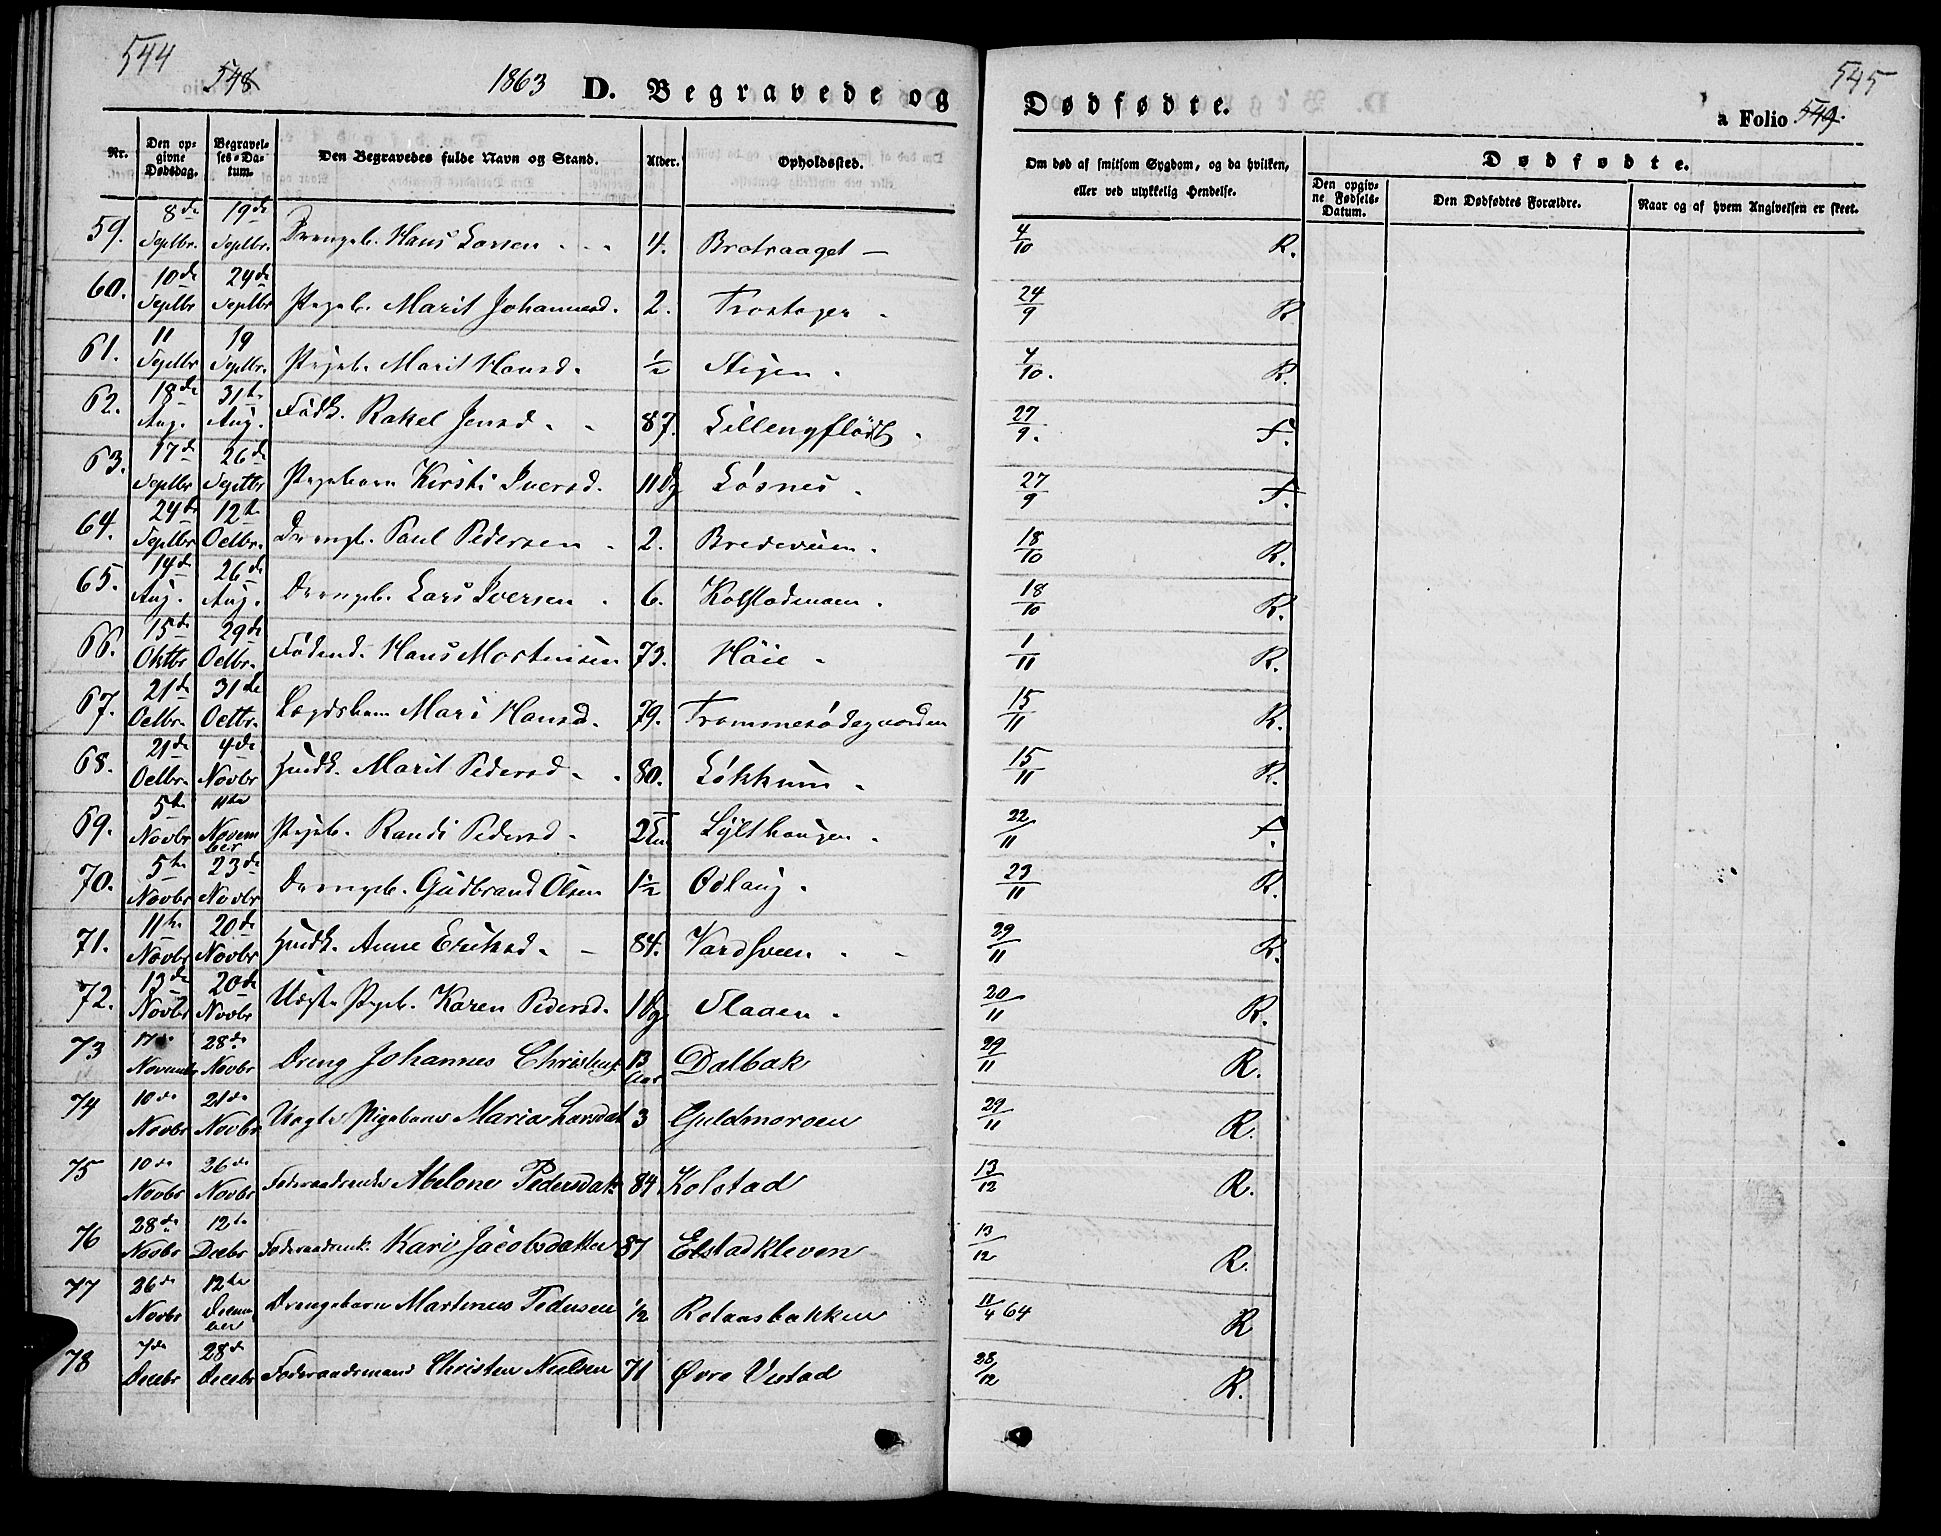 544
548
1863
D. Begravede og
Nr.
Den opgivne Dødsdag.
Begravelses-Datum.
Den Begravedes fulde Navn og Stand.
Alder.
Opholdssted.
59. 8de Septbr. 19de Septbr. Drengeb. Hans Larsen 4.
60. 10de Septbr 24de Septbr Pigeb. Marit Johannesd. 2.
61. 11 Septbr 19 Septbr. Pigeb. Marit Hansd. ½
62. 18de Aug. 31te Aug. Rakel Jensd. 87.
63. 17de Septbr 26de Septbr Pigebarn Kirsti Iversd. 11 Dg Løsnes
64. 24de Septbr 12te Octbr. Drengb. Paul Pedersen 2.
65. 14de Aug. 26de Aug. Drengeb. Lars Iversen 6. Kolstadmoen.
66. 15de Oktbr 29de Octbr. Hans Mortensen 73. Høie
67. 21de Octbr. 31de Octbr. Mari Hansd. 79.
68. 21de Octbr. 4de Novbr Marit Pedersd. 80. Løkkum
69. 5te Novbr 11te November Pigeb. Randi Pedersd. Sylthaugen
70. 5te Novbr 23de Novbr Drengeb. Gudbrand Olsen 1½ Odlaug.
71. 11te Novbr 20de Novbr Anne Eriksd. 84.
72. 13de Novbr 20de Novbr Uægte Pigeb. Karen Pedersd. 1 Dg Slaaen
73 17de November 28de Novbr Dreng Johannes Christens. 13 Aar Dalbak
74 10de Novbr 21de Novbr Uægte Pigebarn Maria Larsdat 3 Guldmoroen
75 10de Novbr 26de Novbr Føderaadsenke Abelone Pedersdat. 84. Kolstad
76 28de Novbr 12te Decbr Føderaadsenk. Kari Jacobsdatter 87 Elstadkleven
77 26de Novbr 12te December Drengebarn Martinus Pedersen ½ Rolaasbakken
78 7de Decbr 28de Decbr Føderaadsmand Christen Nielsen 71 Øvre Vestad
Dødfødte.
545
a Folio 549.
Om død af smitsom Sygdom, og da hvilken, eller ved ulykkelig Hendelse.
Dødfødte.
Den opgivne Fødsels-Datum.
Den Dødfødtes Forældre.
Naar og af hvem Angivelsen er skeet.
4/10 R.
24/9 R
4/10. R.
27/9. F.
27/9 F.
18/10 R.
18/10 R.
1/11 R.
15/11 R.
15/11 R.
22/11 F.
23/11 R.
29/11 R.
20/11 R.
29/11 R.
29/11 R.
13/12 R.
13/12 R.
11/4 64 R
28/12 R.